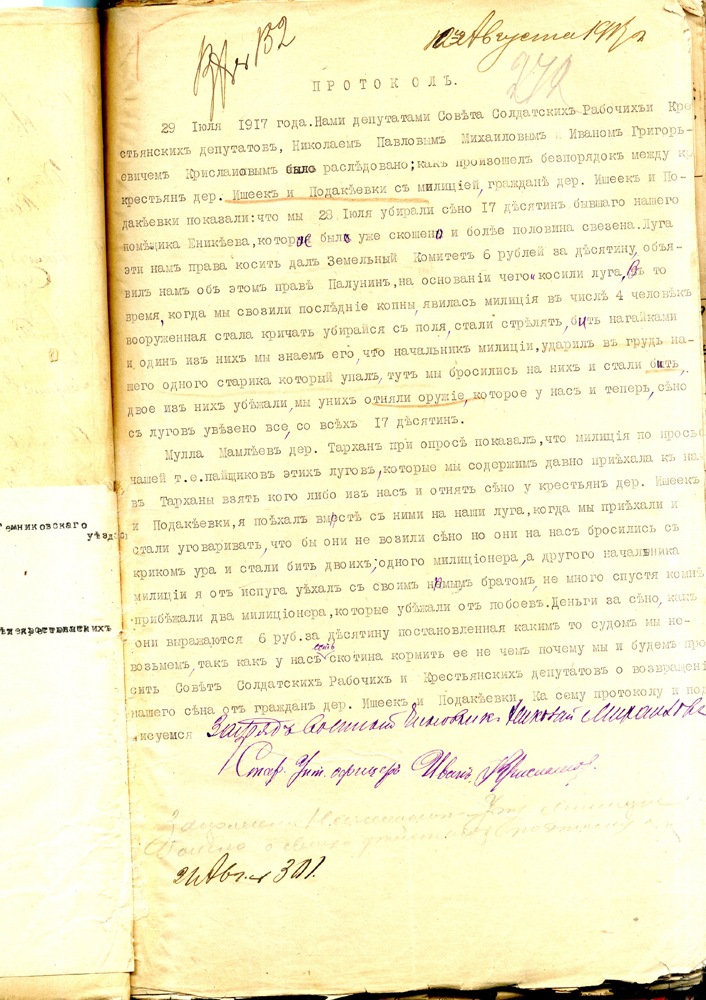 Вх № 132
10го Августа 1917 г
272
ПРОТОКОЛЪ.
29 Iюля 1917 года.Нами депутатами Совѣта Солдатскихъ Рабочихъи Кре
стьянскихъ депутатовъ, Николаемъ Павловымъ Михаиловымъ и Иваномъ Григорь-
евичемъ Крислаиовымъ было раслѣдовано;какъ произошелъ безпорядокъ между кр
крестьян дер. Ишеек и Подакѣевки съ милицiей,гражданѣ дер. Ишеек и По-
дакѣевки показали:что мы 28 Iюля убирали сѣно I7 дѣсятин бывшаго нашего
помѣщика Еникѣева,которое было уже скошено и болѣе половина свезена.Луга
эти намъ права косить далъ Земельный Комитетъ 6 рублей за дѣсятину,объя-
вилъ намъ объ этомъ правѣ Палунин,на основанiи чего косили луга,въ то
время,когда мы свозили послѣднiе копны,явилась милицiя въ числѣ 4 человѣкъ
вооруженная стала кричать убирайся съ поля,стали стрѣлять,бить нагайками
и один изъ нихъ мы знаемъ его,что начальникъ милицiи,ударилъ въ грудь на-
шего одного старика который упалъ,тутъ мы бросились на нихъ и стали бить,
двое изъ нихъ убѣжали,мы унихъ отняли оружiе,которое у насъ и теперь,сѣно
съ луговъ увѣзено все,со всѣхъ I7 дѣсятин.
Мулла Мамлѣевъ дер. Тарханъ при опросѣ показалъ,что милицiя по прось
нашей т.е.пайщиковъ этихъ луговъ,которые мы содержимъ давно приѣхала къ на
въ Тарханы взять кого либо изъ насъ и отнять сѣно у крестьян дер. Ишеекъ
и Подакѣевки,я поѣхалъ вмѣстѣ съ ними на наши луга,когда мы приѣхали и
стали уговаривать,что бы они не возили сѣно но они на насъ бросились съ
крикомъ ура и стали бить двоихъ;одного милицiонера,а другого начальника
милицiи я отъ испуга уѣхалъ съ своимъ нѣмымъ братомъ,не много спустя комнѣ
прибѣжали два милицiонера,которые убѣжали отъ побоевъ.Деньги за сѣно,какъ
они выражаются 6 руб.за дѣсятину постановленная какимъ то судомъ мы не-
возьмемъ,такъ какъ у насъ есть скотина кормить ее не чемъ почему мы и будемъ про
сить Совѣтъ Солдатскихъ Рабочихъ и Крестьянскихъ депутатовъ о возвращенi
нашего сѣна отъ граждан дер. Ишеекъ и Подакѣевки.Ка сему протоколу и под
исуемся Зауряд Военный Чиновникъ Николай Михаиловъ
Стар. Унт. офицеръ Иванъ Крисланов.
21 Авг. № 301.
Темниковскаго
уѣзда